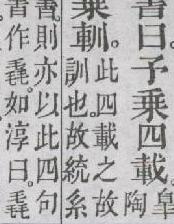 書曰。予乘四載。皐
陶
乘䡅。此四載之故
訓也。故統系
書。則亦以此四句
書作毳。如淳曰。毳